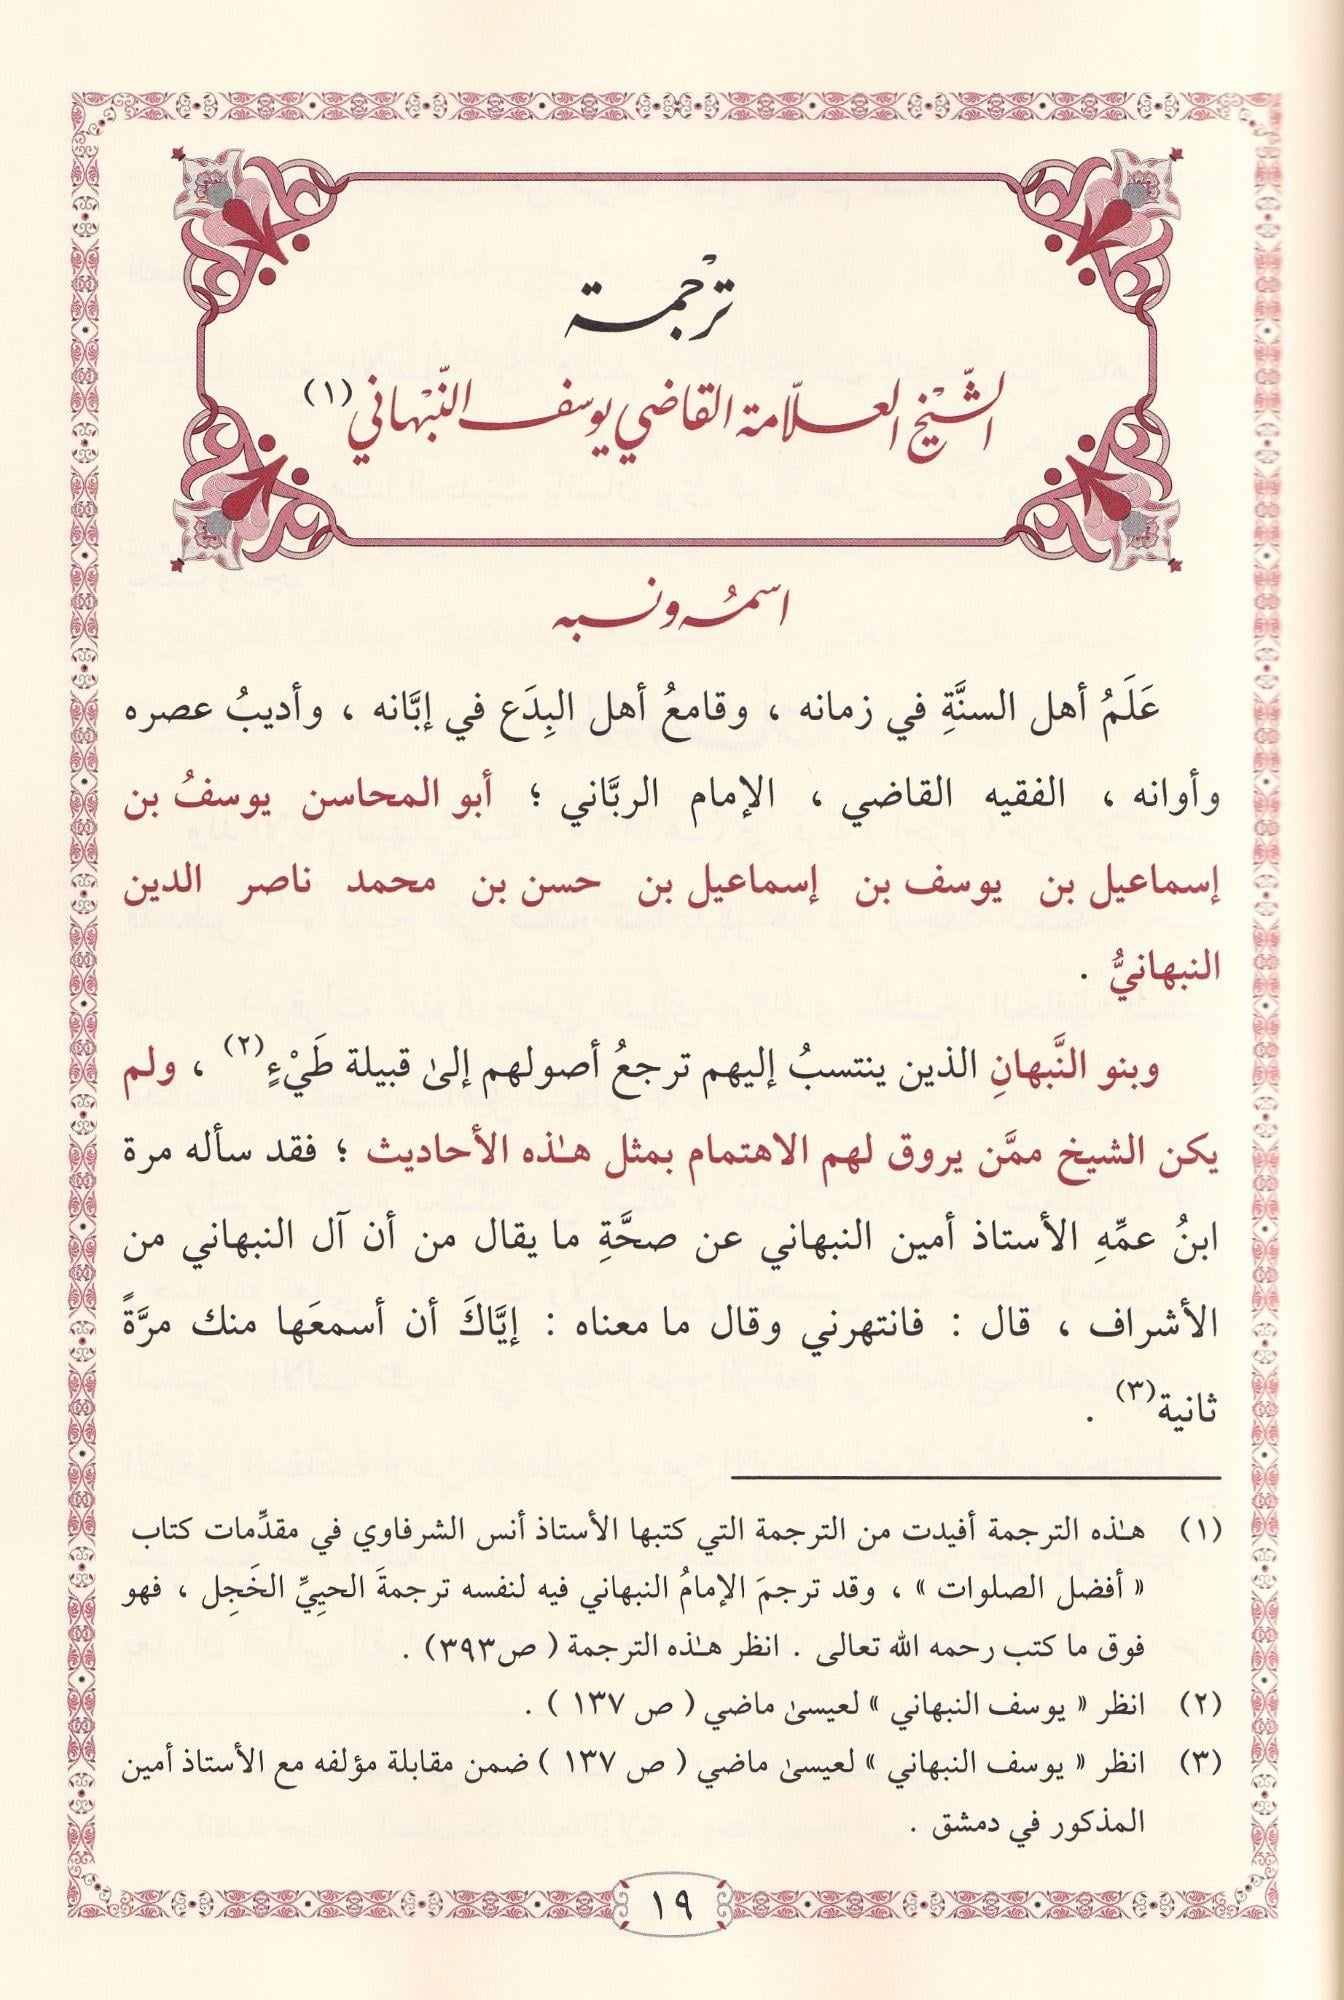 ترجمة
الشّيخ العلّامة القاضي يوسف النّبهاني (١)
اسمُه ونسبه
عَلَمُ أهل السنَّةِ في زمانه ، وقامعُ أهل البِدَع في إبَّانه ، وأديبُ عصره
وأوانه ، الفقيه القاضي ، الإمام الربَّاني ؛ أبو المحاسن يوسفُ بن
إسماعيل بن يوسف بن إسماعيل بن حسن بن محمد ناصر الدين
النبهانيُّ .
وبنو النَّبهانِ الذين ينتسبُ إليهم ترجعُ أصولهم إلىٰ قبيلة طَيْءٍ(٢) ، ولم
يكن الشيخ ممَّن يروق لهم الاهتمام بمثل هـٰذه الأحاديث ؛ فقد سأله مرة
ابنُ عمِّهِ الأستاذ أمين النبهاني عن صحَّةِ ما يقال من أن آل النبهاني من
الأشراف ، قال : فانتهرني وقال ما معناه : إيَّاكَ أن أسمعَها منك مرَّةً
ثانية(٣) .
(١) هـٰذه الترجمة أفيدت من الترجمة التي كتبها الأستاذ أنس الشرفاوي في مقدِّمات كتاب
« أفضل الصلوات » ، وقد ترجمَ الإمامُ النبهاني فيه لنفسه ترجمةَ الحيِيِّ الخَجِل ، فهو
فوق ما كتب رحمه الله تعالى . انظر هـٰذه الترجمة ( ص٣٩٣) .
(٢) انظر « يوسف النبهاني » لعيسىٰ ماضي ( ص ١٣٧ ) .
(٣) انظر « يوسف النبهاني » لعيسىٰ ماضي ( ص ١٣٧ ) ضمن مقابلة مؤلفه مع الأستاذ أمين
المذكور في دمشق .
١٩